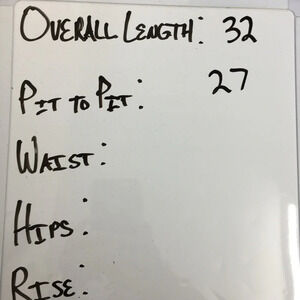 Overall Length: 32
Pit to Pit: 27
Waist:
Hips:
Rise: